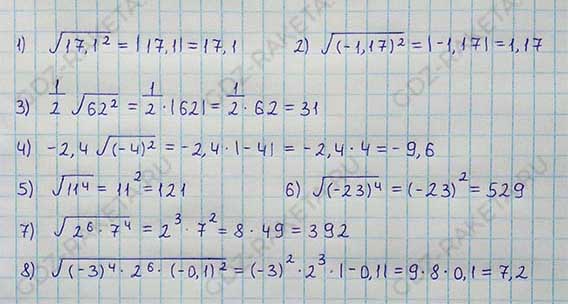 1) √17,1² = |17,1| = 17,1 2) √(-1,17)² = |-1,17| = 1,17
3) 1/2 √62² = 1/2 · |62| = 1/2 · 62 = 31
4) -2,4 √(-4)² = -2,4 · |-4| = -2,4 · 4 = -9,6
5) √11⁴ = 11² = 121 6) √(-23)⁴ = (-23)² = 529
7) √2⁶ · 7⁴ = 2³ · 7² = 8 · 49 = 392
8) √(-3)⁴ · 2⁶ · (-0,1)² = (-3)² · 2³ · |-0,1| = 9 · 8 · 0,1 = 7,2
GDZ-RAKETA.RU